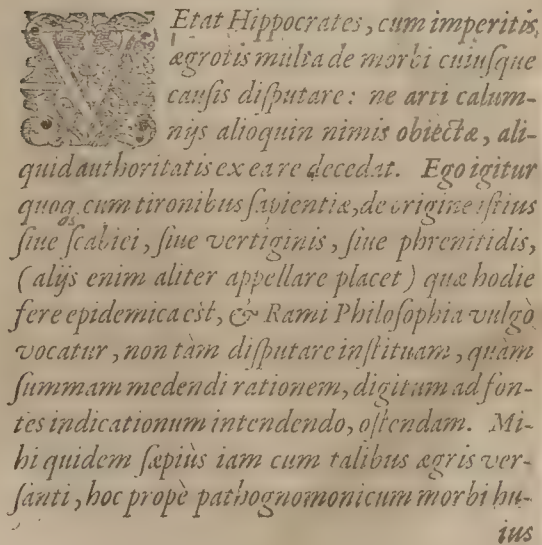 VEtat Hippocrates, cum imperitis
ægrotis multa de morbi cuiusque
causis disputare: ne arti calum-
nijs alioquin nimis obiectæ, ali-
quid authoritatis ex ea re decedat. Ego igitur
quoq; cum tironibus sapientiæ, de origine istius
siue scabiei, siue vertiginis, siue phrenitidis,
(alijs enim aliter appellare placet) quæ hodie
fere epidemica est, & Rami Philosophia vulgò
vocatur, non tàm disputare instituam, quàm
summam medendi rationem, digitum ad fon-
tes indicationum intendendo, ostendam. Mi-
hi quidem sæpiùs iam cum talibus ægris ver-
santi, hoc propè pathognomonicum morbi hu-
ius